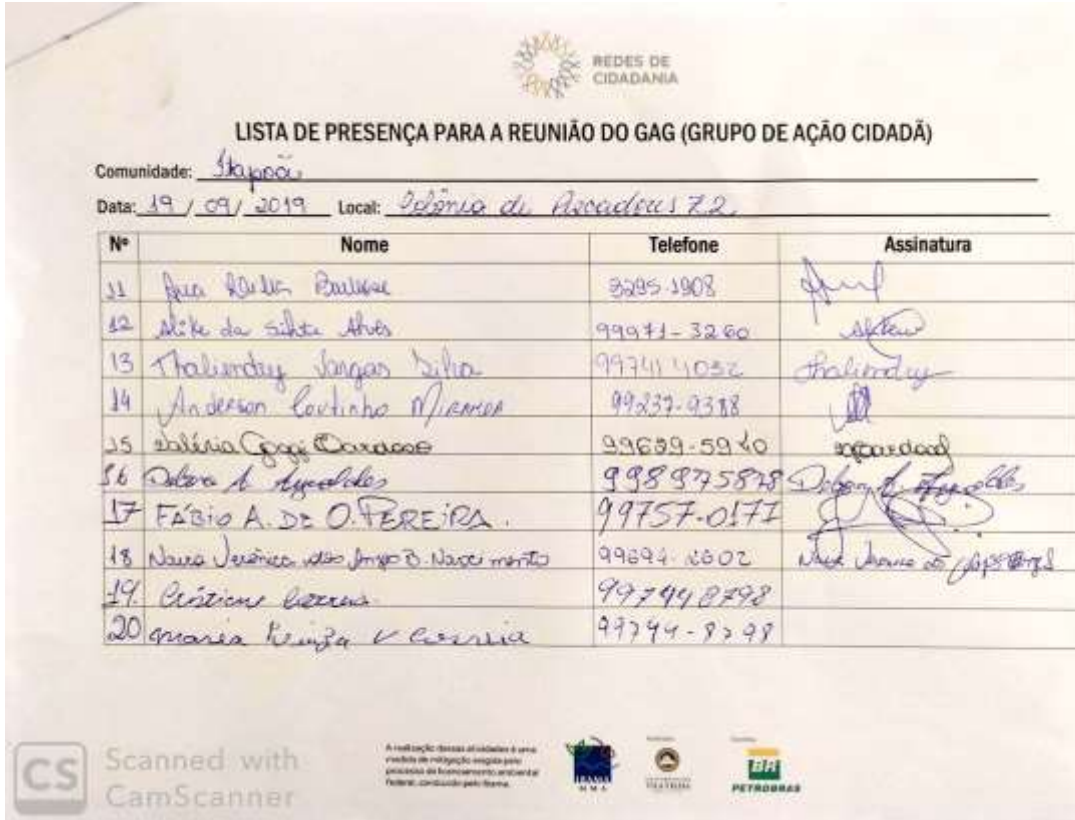 REDES DE
CIDADANIA
LISTA DE PRESENÇA PARA A REUNIÃO DO GAG (GRUPO DE AÇÃO CIDADÃ)
Comunidade: Itapoã
Data: 19 / 09 / 2019 Local: Colônia de Pescadores Z2
Nº Nome Telefone Assinatura
11 Ana 3295-1908
12 da Alves 99971-3260
13 Thaliendry Vargas Silva 99741 4052 Thaliendry
14 Anderson Coutinho MIRANDA 99237-9388
15 Valéria Cardoso 99659-5940
16 Debora A. 998975878 Debora A.
17 FÁBIO A. DE O. PEREIRA. 99757-0177
18 Verônica dos Anjos B. Nascimento 99694-2602
19. Cristiane 997448798
20 Maria Correia 99744-8798
A realização dessas atividades é uma
medida de mitigação exigida pelo
processo de licenciamento ambiental
federal, conduzido pelo Ibama.
IBAMA
MMA
BR
PETROBRAS
CS Scanned with
CamScanner